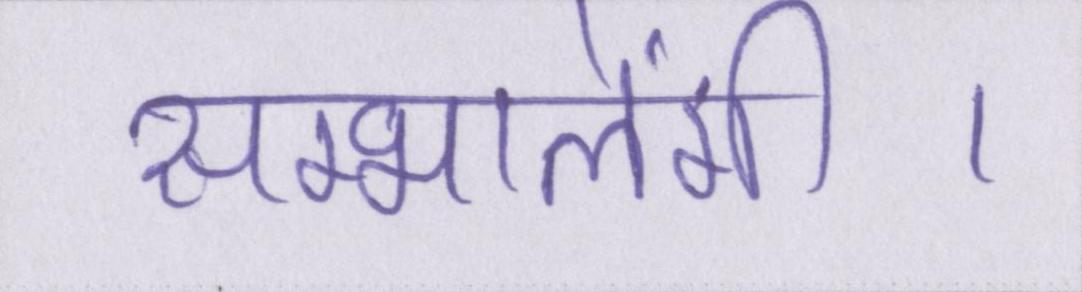 सम्भालेंगी ।